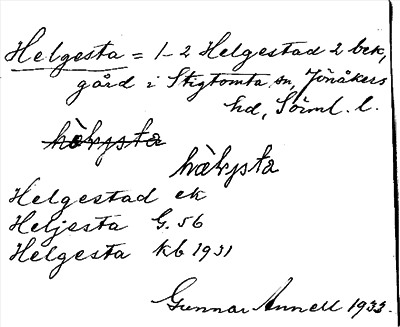 Helgesta = 1-2 Helgestad 2 bek,
gård i Stigtomta sn, Jönåkers
hd, Söiml. l.
Helgestad ek
Heljesta G. 56
Helgesta kb 1931
Gunnar Annell 1933.